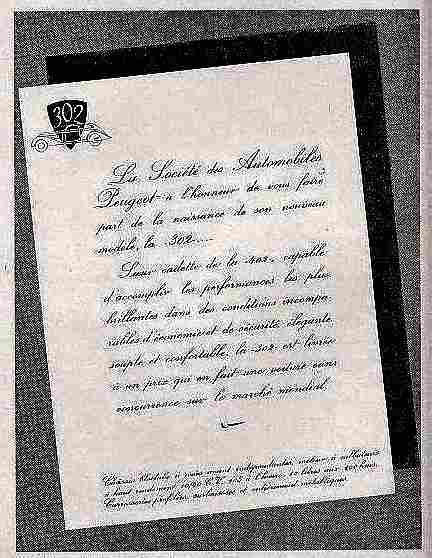 302
La Société des Automobiles
Peugeot a l'honneur de vous faire
part de la naissance de son nouveau
modèle, la 302....
Sœur cadette de la 402, capable
d'accomplir les performances les plus
brillantes dans des conditions incompa-
rables d'économie et de sécurité, élégante,
souple et confortable, la 302 est livrée
à un prix qui en fait une voiture sans
concurrence sur le marché mondial.
Châssis Bloctube à roues avant indépendantes, moteur à culbuteurs
à haut rendement 10/ C.V. 105 à l'heure, 10 litres aux 100 kms.
Carrosseries profilées, surbaissées et entièrement métalliques.